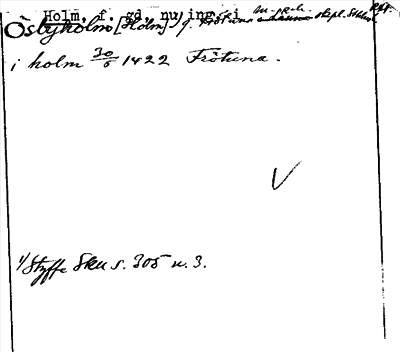 Holm, f. gd, nu ing. i
Östbyholm [Holm] 1/ f. Frötuna skpl. Sthlm
i holm 30/6 1422 Frötuna.
V
1/ Styffe Sku s. 305 n. 3.